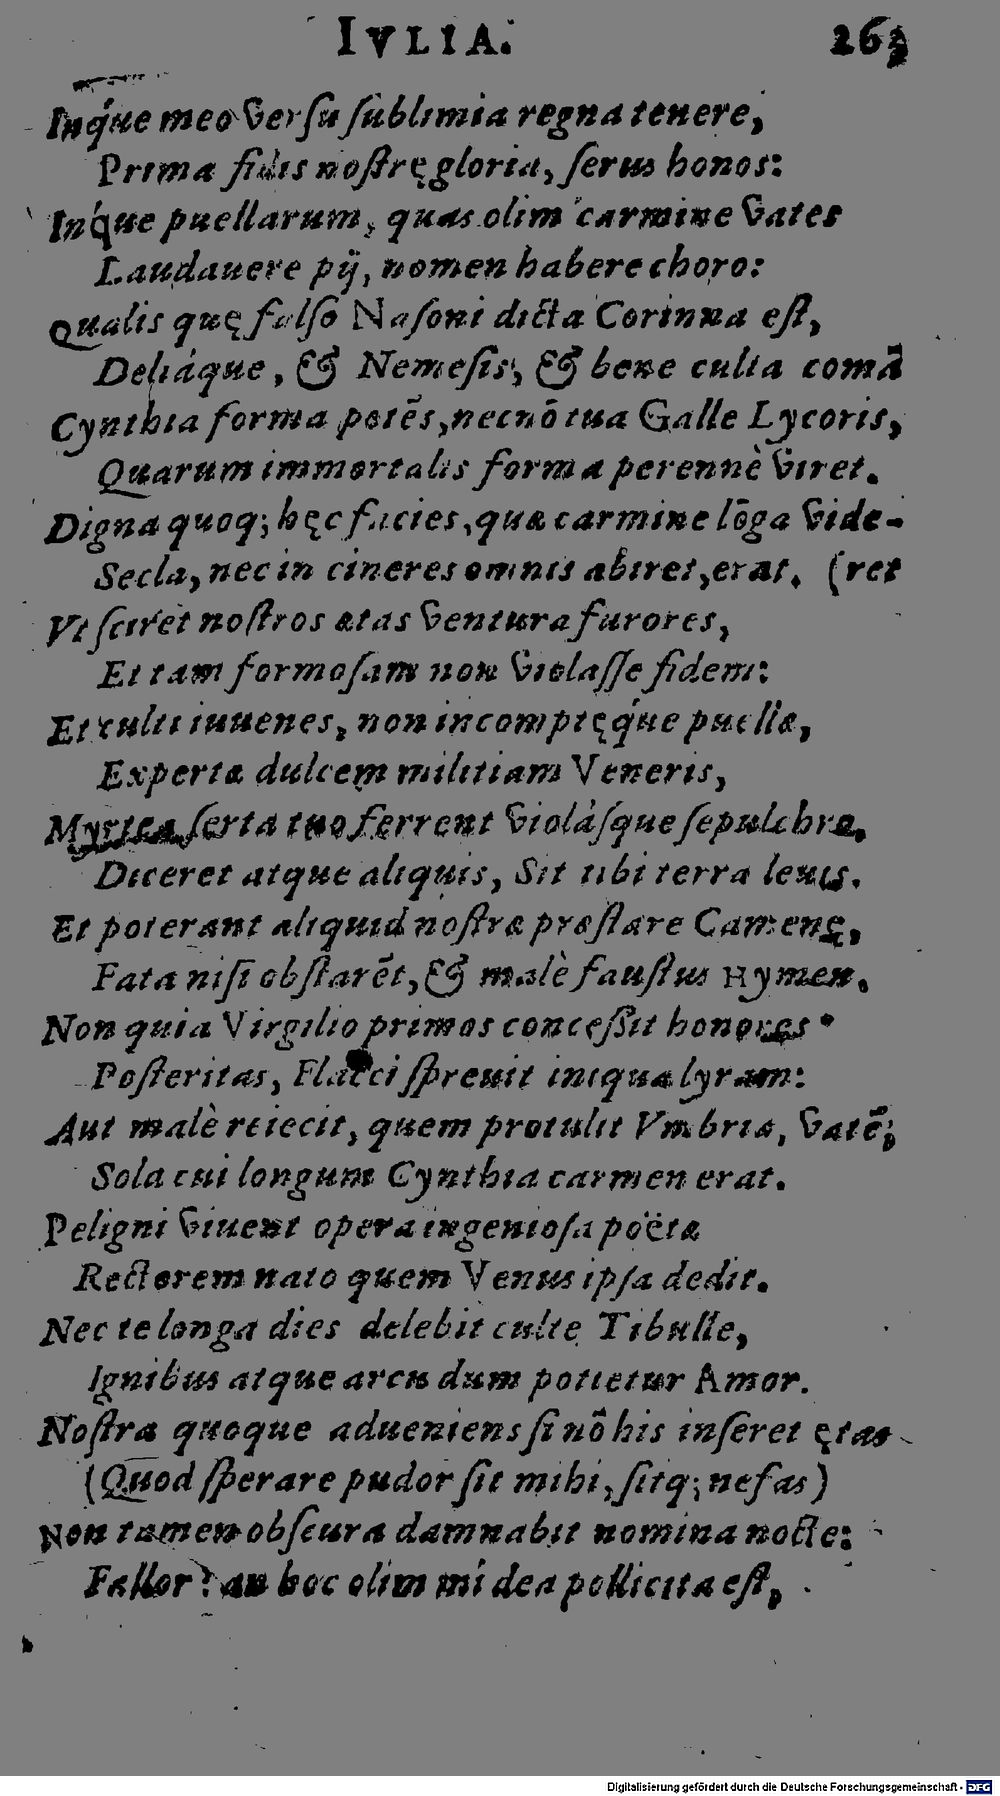 IVLIA. 263
Inq́ue meo versu sublimia regna tenere,
Prima fidis nostrę gloria, serus honos:
Inq́ue puellarum, quas olim carmine vates
Laudauere pij, nomen habere choro:
Qualis quę falso Nasoni dicta Corinna est,
Deliáque, & Nemesis, & bene culta comã
Cynthia forma potẽs, necnõ tua Galle Lycoris,
Quarum immortalis forma perennè viret.
Digna quoq; hęc facies, quæ carmine lõga vide-
Secla, nec in cineres omnis abiret, erat. (ret
Vt sciret nostros ætas ventura furores,
Et tam formosam non violasse fidem:
Et culti iuuenes, non incomptęq́ue puellæ,
Expertæ dulcem militiam Veneris,
Myrtea serta tuo ferrent violásque sepulchro,
Diceret atque aliquis, Sit tibi terra leuis.
Et poterant aliquid nostræ præstare Camenę,
Fata nisi obstarẽt, & malè faustus Hymen.
Non quia Virgilio primos concessit honores
Posteritas, Flacci spreuit iniqua lyram:
Aut malè reiecit, quem protulit Vmbria, vatẽ;
Sola cui longum Cynthia carmen erat.
Peligni viuent opera ingeniosa poëtæ
Rectorem nato quem Venus ipsa dedit.
Nec te longa dies delebit culte Tibulle,
Ignibus atque arcu dum potietur Amor.
Nostra quoque adueniens si nõ his inseret ętas
(Quod sperare pudor sit mihi, sitq; nefas)
Non tamen obscura damnabit nomina nocte:
Fallor? an hoc olim mí dea pollicita est,
Digitalisierung gefördert durch die Deutsche Forschungsgemeinschaft - DFG